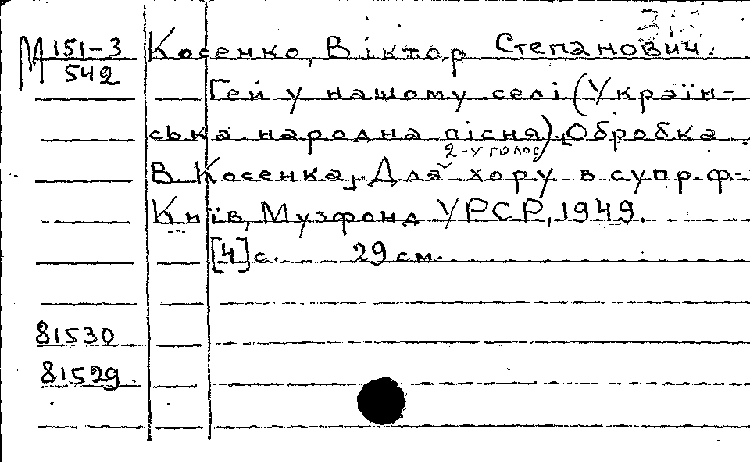 М 151-3 Косенко, Віктор Степанович.
542
Гей у нашому селі (Україн-
ська народна пісня). Обробка
2-уголос
В. Косенка. Для хору в супр. ф-
Київ, Музфонд УРСР, 1949.
[4] с. 29 см.
81530
81529